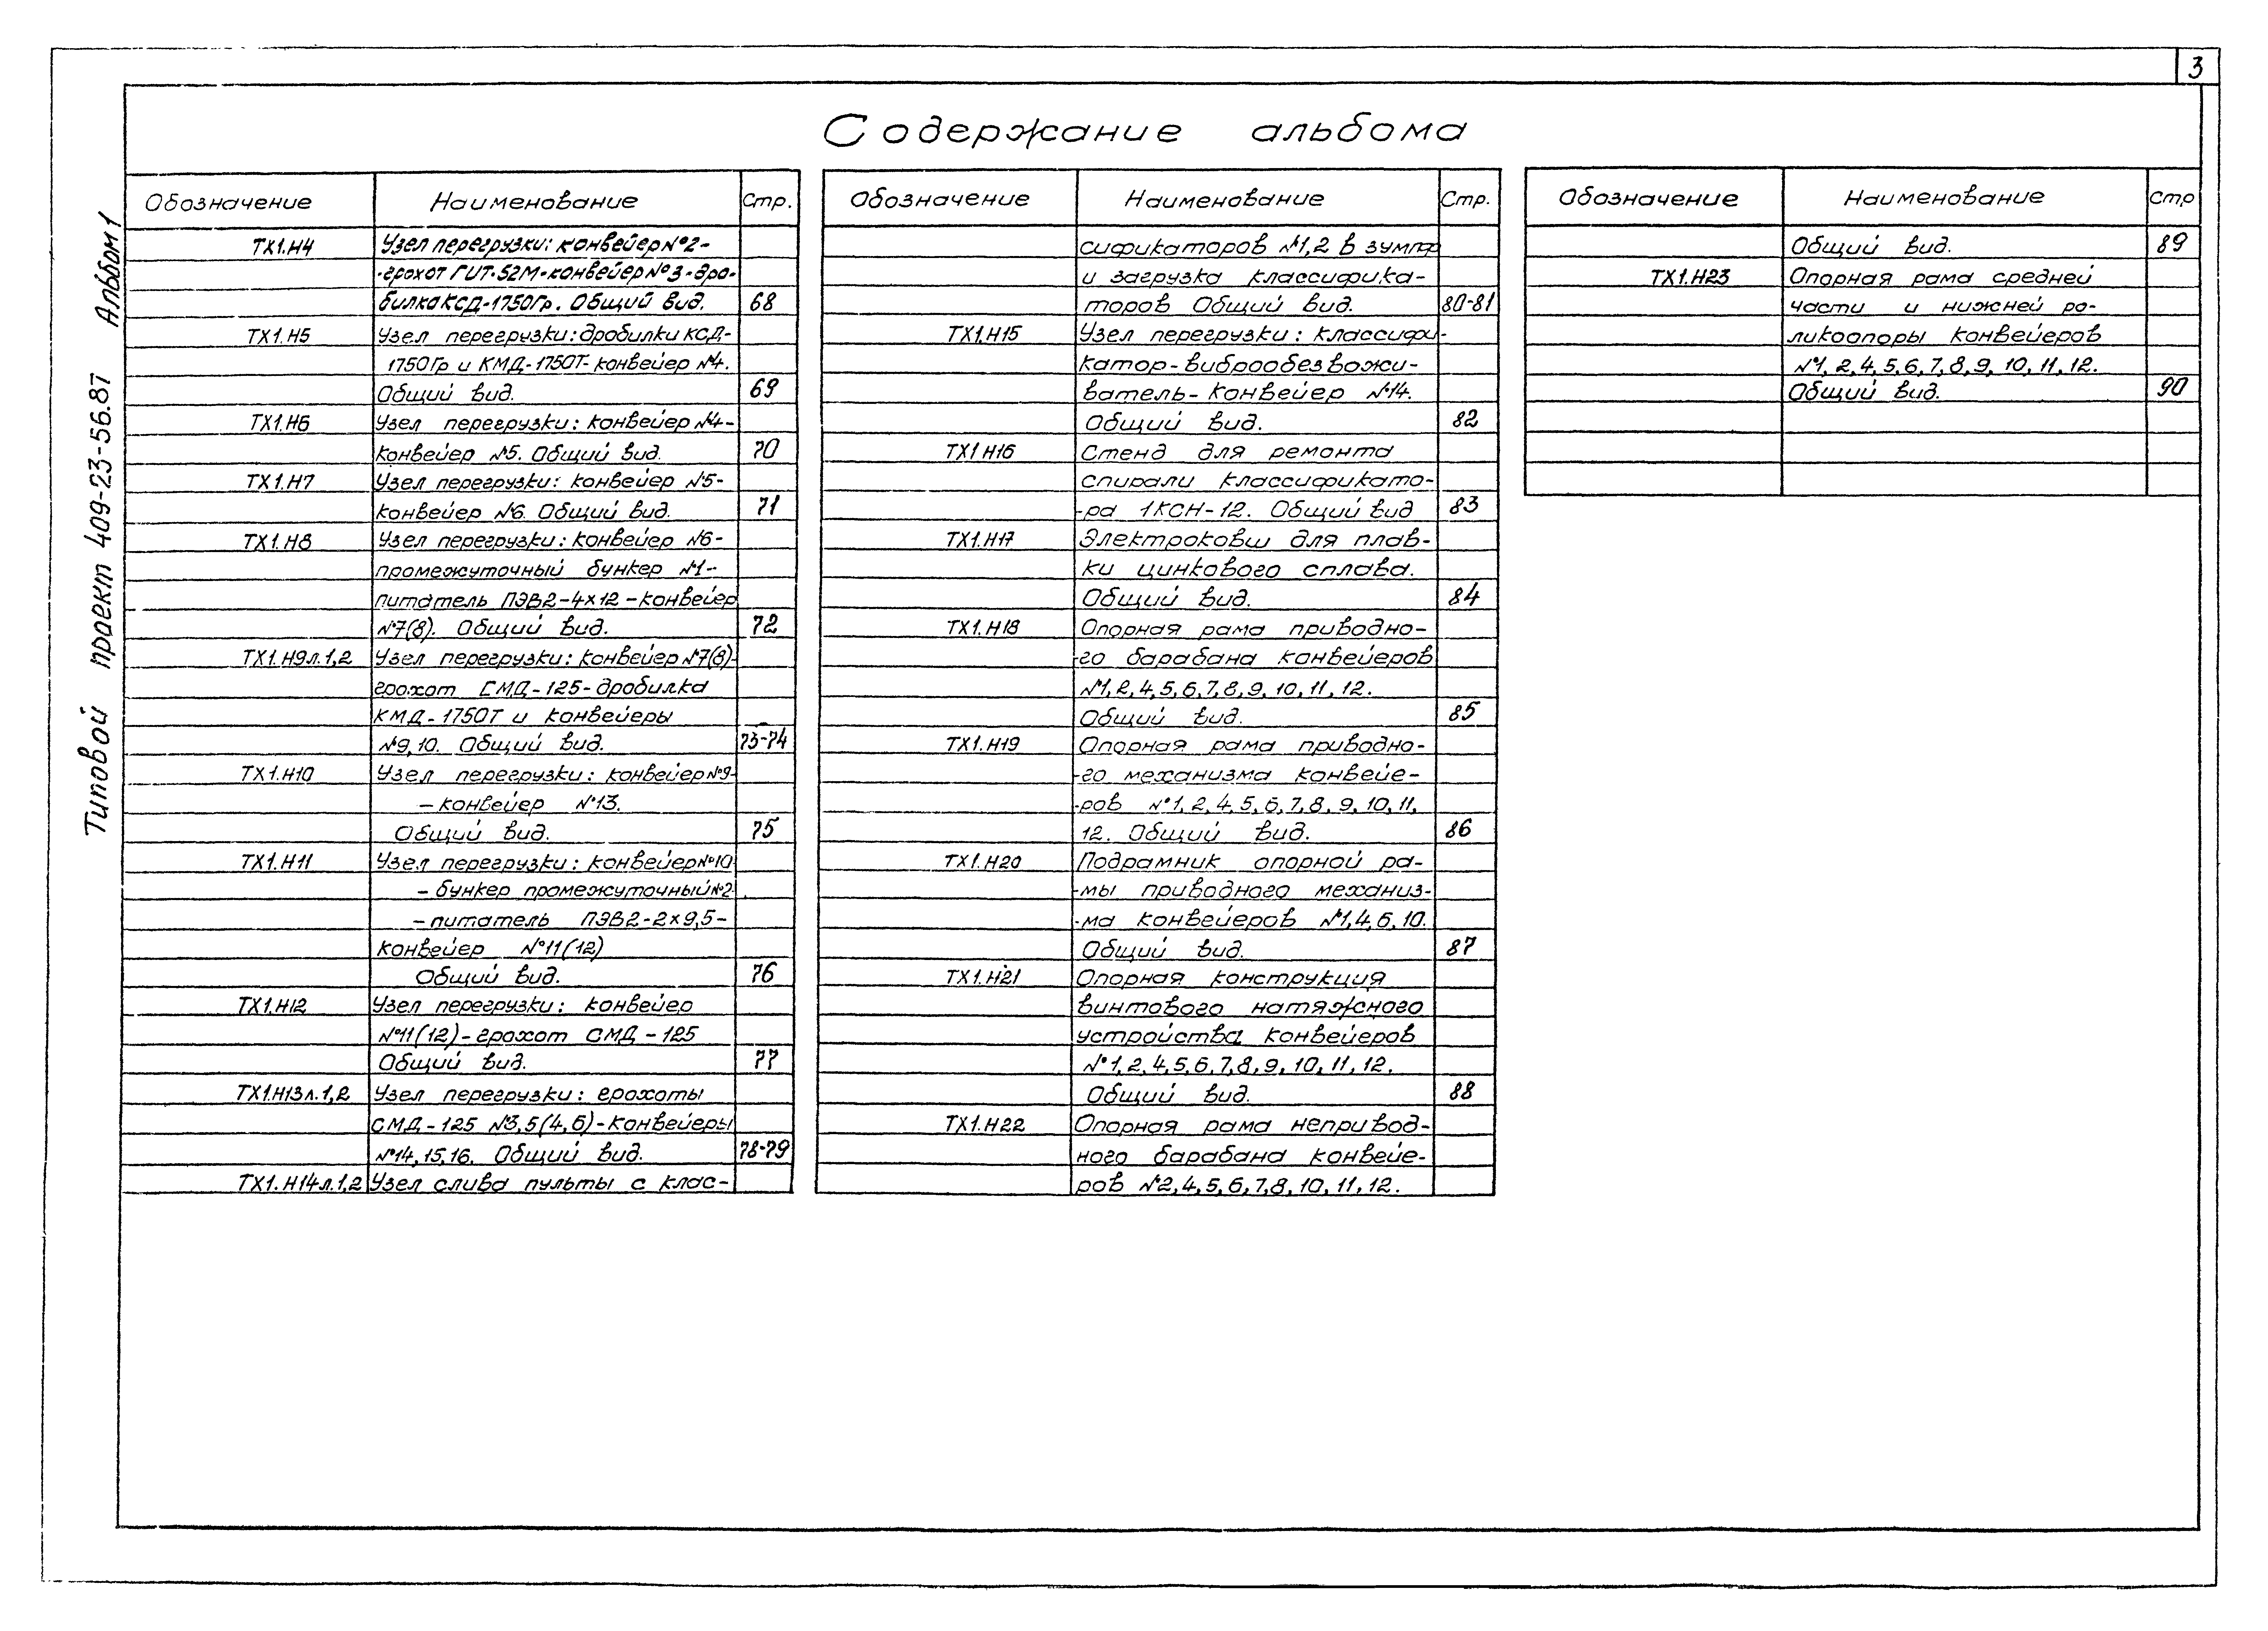 3
Типовой проект 409-23-56.87 Альбом 1
Содержание альбома
Обозначение Наименование Стр.
ТХ1.Н4 Узел перегрузки: конвейер №2-
-грохот ГИТ-52М-конвейер №3-дро-
билка КСД-1750Гр. Общий вид. 68
ТХ1.Н5 Узел перегрузки: дробилки КСД-
1750Гр и КМД-1750Т-конвейер №4.
Общий вид. 69
ТХ1.Н6 Узел перегрузки: конвейер №4-
конвейер №5. Общий вид. 70
ТХ1.Н7 Узел перегрузки: конвейер №5-
конвейер №6. Общий вид. 71
ТХ1.Н8 Узел перегрузки: конвейер №6-
промежуточный бункер №1-
питатель ПЭВ2-4х12-конвейер
№7(8). Общий вид. 72
ТХ1.Н9л.1,2 Узел перегрузки: конвейер №7(8)-
грохот СМД-125-дробилка
КМД-1750Т и конвейеры
№9,10. Общий вид. 73-74
ТХ1.Н10 Узел перегрузки: конвейер №9-
-конвейер №13.
Общий вид. 75
ТХ1.Н11 Узел перегрузки: конвейер №10
-бункер промежуточный №2
-питатель ПЭВ2-2х9,5-
конвейер №11(12)
Общий вид. 76
ТХ1.Н12 Узел перегрузки: конвейер
№11(12)-грохот СМД-125
Общий вид. 77
ТХ1.Н13л.1,2 Узел перегрузки: грохоты
СМД-125 №3,5(4,6)-конвейеры
№14,15,16. Общий вид. 78-79
ТХ1.Н14л.1,2 Узел слива пульты с клас-
Обозначение Наименование Стр.
сификаторов №1,2 в зумпф
и загрузка классифика-
торов Общий вид. 80-81
ТХ1.Н15 Узел перегрузки: классифи-
катор-виброобезвожи-
ватель-конвейер №14.
Общий вид. 82
ТХ1.Н16 Стенд для ремонта
спирали классификато-
-ра 1КСН-12. Общий вид 83
ТХ1.Н17 Электроковш для плав-
ки цинкового сплава.
Общий вид. 84
ТХ1.Н18 Опорная рама приводно-
-го барабана конвейеров
№1,2,4,5,6,7,8,9,10,11,12.
Общий вид. 85
ТХ1.Н19 Опорная рама приводно-
-го механизма конвейе-
-ров №1,2,4,5,6,7,8,9,10,11,
12. Общий вид. 86
ТХ1.Н20 Подрамник опорной ра-
-мы приводного механиз-
-ма конвейеров №1,4,6,10.
Общий вид. 87
ТХ1.Н21 Опорная конструкция
винтового натяжного
устройства конвейеров
№1,2,4,5,6,7,8,9,10,11,12.
Общий вид. 88
ТХ1.Н22 Опорная рама непривод-
ного барабана конвейе-
ров №2,4,5,6,7,8,10,11,12.
Обозначение Наименование Стр
Общий вид. 89
ТХ1.Н23 Опорная рама средней
части и нижней ро-
ликоопоры конвейеров
№1,2,4,5,6,7,8,9,10,11,12.
Общий вид. 90